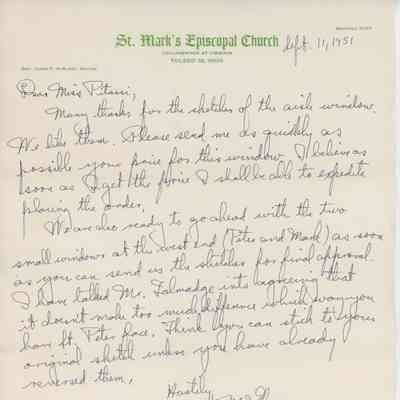 St. Mark's Episcopal Church
COLLINGWOOD AT VIRGINIA
TOLEDO 10, OHIO
Sept. 11, 1951
Dear Miss Pitassi,
Many thanks for the sketches of the aisle window.
We like them. Please send me as quickly as
possible your price for this window. I believe as
soon as I get the price I shall be able to expedite
placing the order.
We are also ready to go ahead with the two
small windows at the west end (Peter and Mark) as soon
as you can send us the sketches for final approval.
I have talked Mr. Talmadge into agreeing that
it doesn't make too much difference which way you
have St. Peter face. Think you can stick to your
original sketch unless you have already
reversed them.
Hastily,